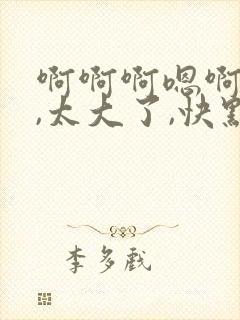 啊啊啊嗯啊
,太大了,快點
李多戲